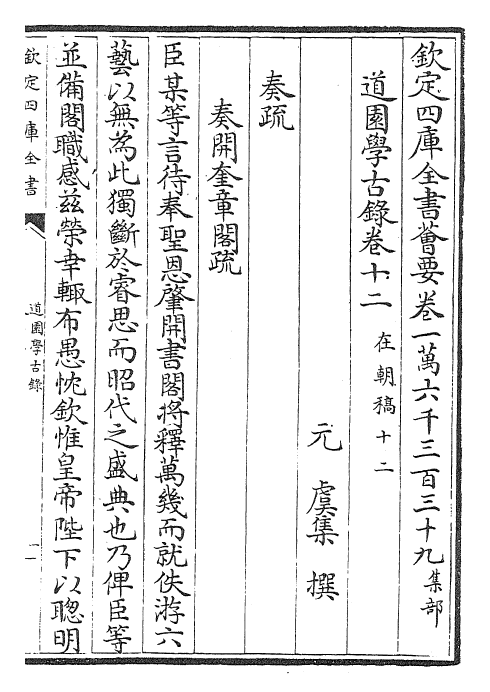 欽定四庫全書薈要卷一萬六千三百三十九集部
道園學古錄卷十二 在朝稿十二
元 虞集 撰
奏疏
奏開奎章閣疏
臣某等言待奉聖恩肇開書閣將釋萬幾而就佚游六
藝以無為此獨斷於睿思而昭代之盛典也乃俾臣等
並備閣職感茲榮幸輙布愚忱欽惟皇帝陛下以聰明
欽定四庫全書
道園學古錄
一